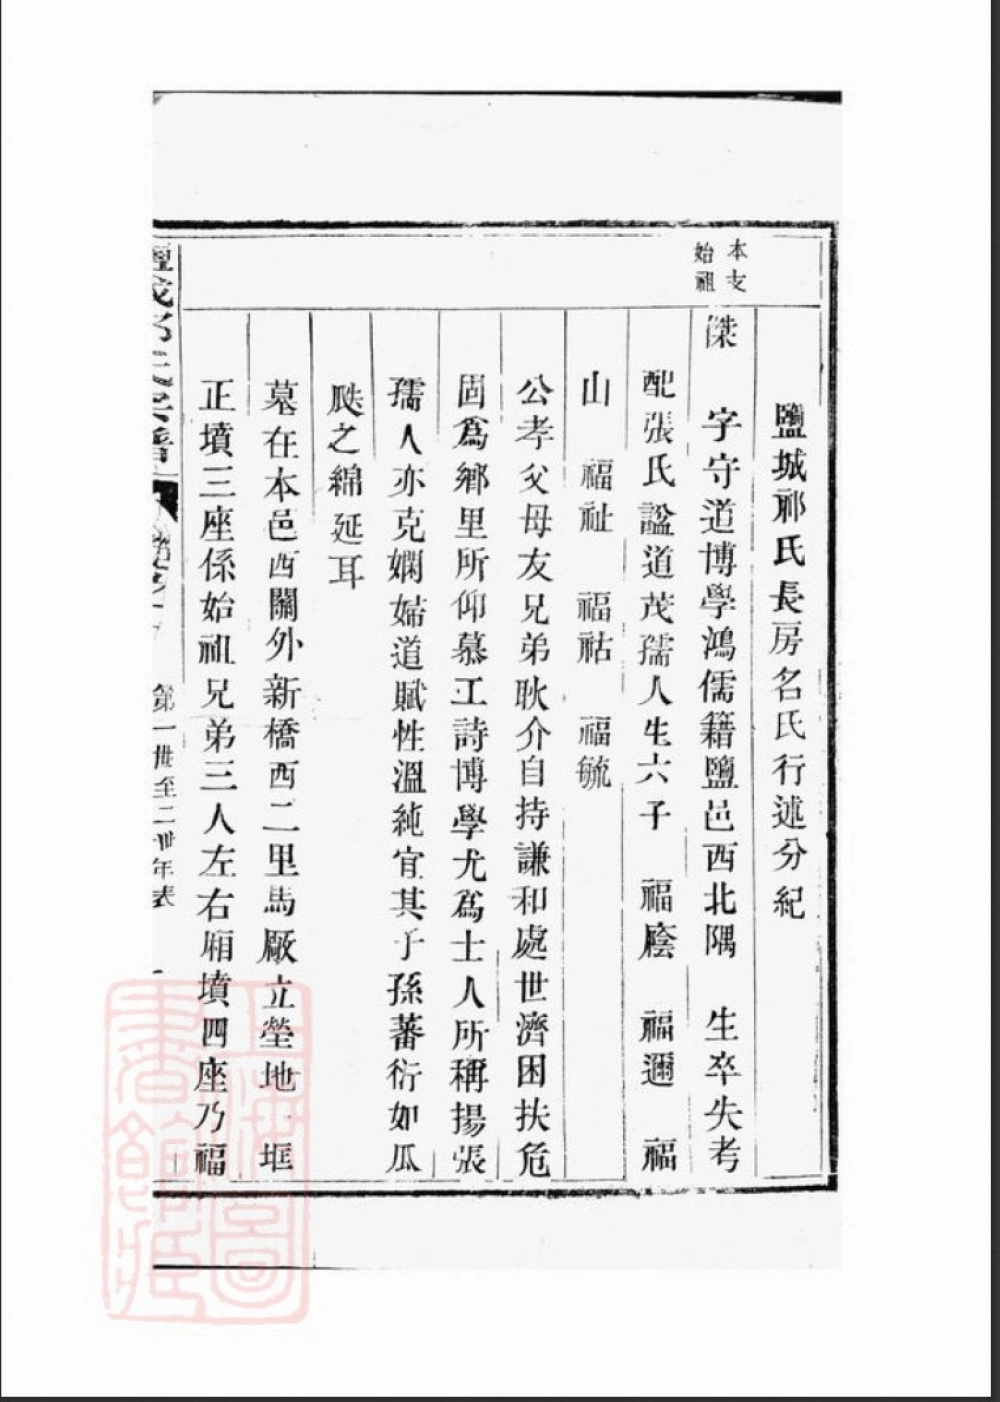 鹽城祁氏長房名氏行述分紀
本支
始祖
傑　字守道博學鴻儒籍鹽邑西北隅　生卒失考
配張氏諡道茂孺人生六子　福廕　福邇　福
山　福祉　福祜　福毓
公孝父母友兄弟耿介自持謙和處世濟困扶危
固爲鄉里所仰慕工詩博學尤爲士人所稱揚張
孺人亦克嫻婦道賦性溫純宜其子孫蕃衍如瓜
瓞之綿延耳
墓在本邑西關外新橋西二里馬廠立塋地一㘰
正墳三座係始祖兄弟三人左右廂墳四座乃福
第一世至二世年表